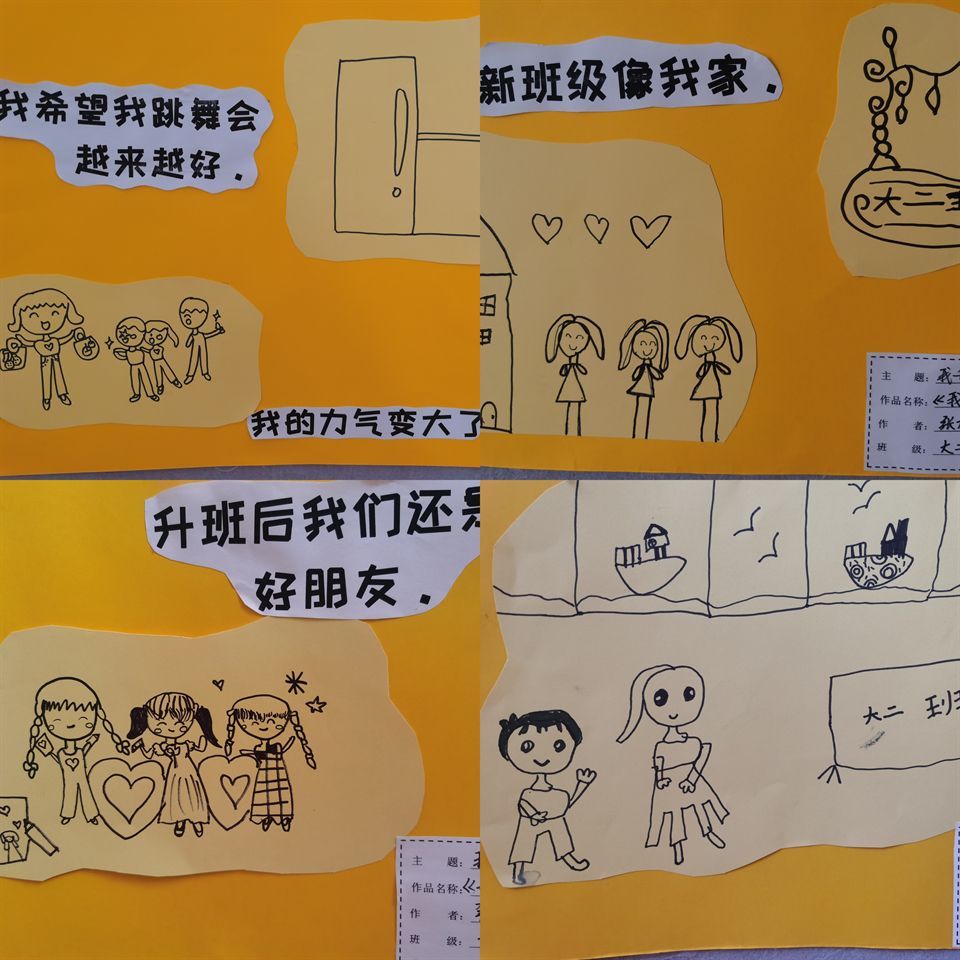 我希望我跳舞会
越来越好.
我的力气变大了
新班级像我家.
大二
主 题:
作品名称:《我
作 者:
班 级: 大二
升班后我们还是
好朋友.
主 题:
作品名称:《
作 者:
班 级:
大二